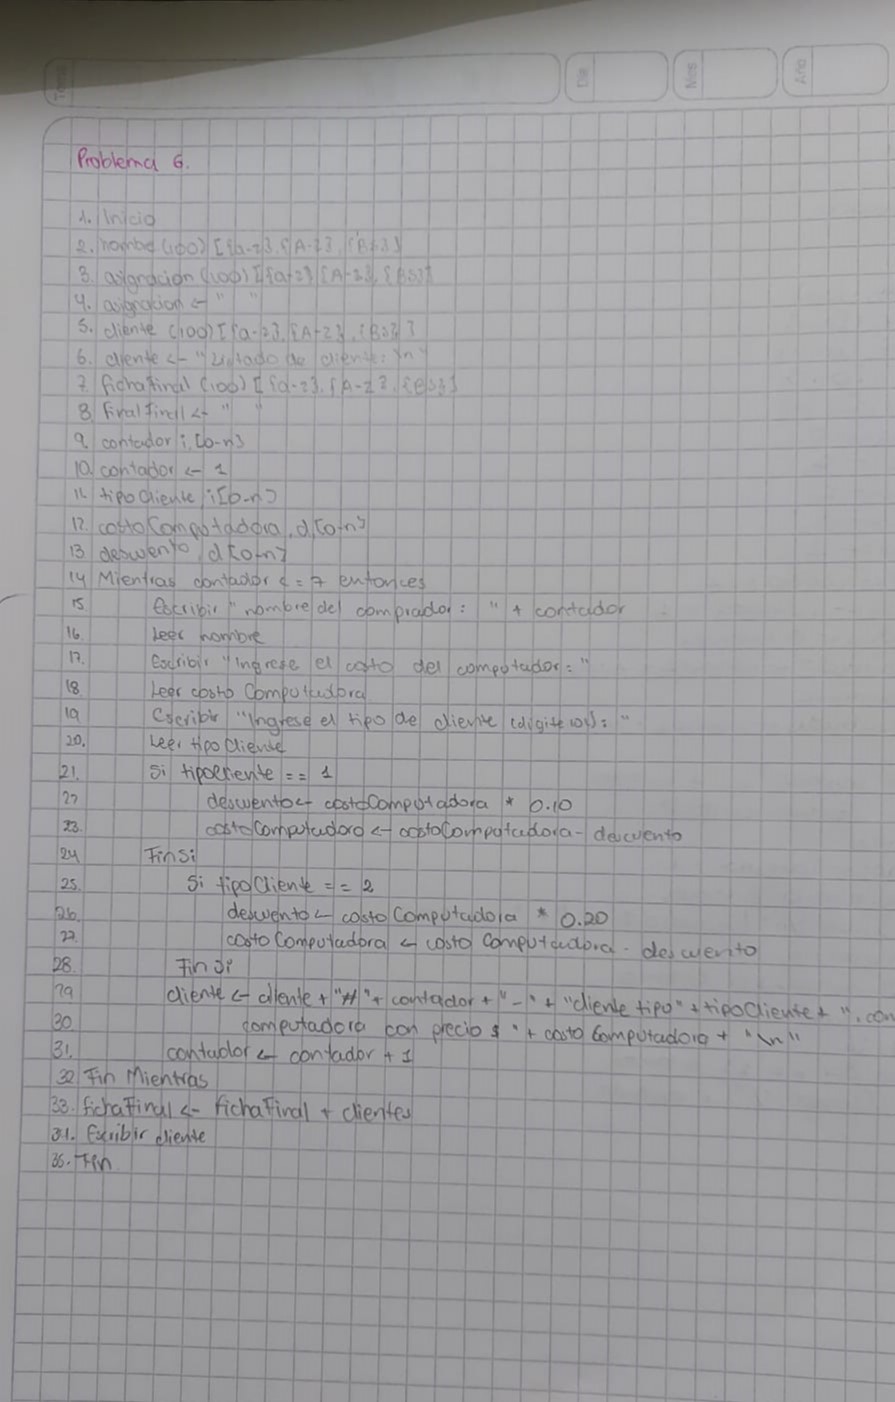 Tema
Día
Mes
Año
Problema 6.
1. Inicio
2. nombre (100) [{a-z}, {A-Z}, {BS}]
3. asignacion (100) [{a-z} {A-Z}, {BS}]
4. asignacion <- " "
5. cliente (100) [{a-z}, {A-Z}, {BS}]
6. cliente <- "Listado de cliente: \n"
7. fichaFinal (100) [{a-z}, {A-Z}, {BS}]
8. <- " "
9. contador i, [0-n]
10. contador <- 1
11. tipoCliente, i[0-n]
12. costoComputadora, d[0-n]
13 descuento, d[0-n]
14 Mientras contador <= 7 entonces
15. Escribir "nombre del comprador: " + contador
16. Leer nombre
17. Escribir "Ingrese el costo del computador: "
18 Leer costo Computadora
19 Escribir "Ingrese el tipo de cliente (digite : "
20. Leer tipo Cliente
21. Si tipocliente == 1
22 descuento <- costoComputadora * 0.10
23. costoComputadora <- costoComputadora - descuento
24 Finsi
25. Si tipoCliente == 2
26. descuento <- costo Computadora * 0.20
27. costo Computadora <- costo Computadora - descuento
28 Fin si
29 cliente <- cliente + "#" + contador + "-" + "cliente tipo" + tipoCliente + ", con
30 computadora con precio $ " + costo Computadora + "\n"
31. contador <- contador + 1
32 Fin Mientras
33. fichaFinal <- fichaFinal + clientes
34. Escribir cliente
35. Fin